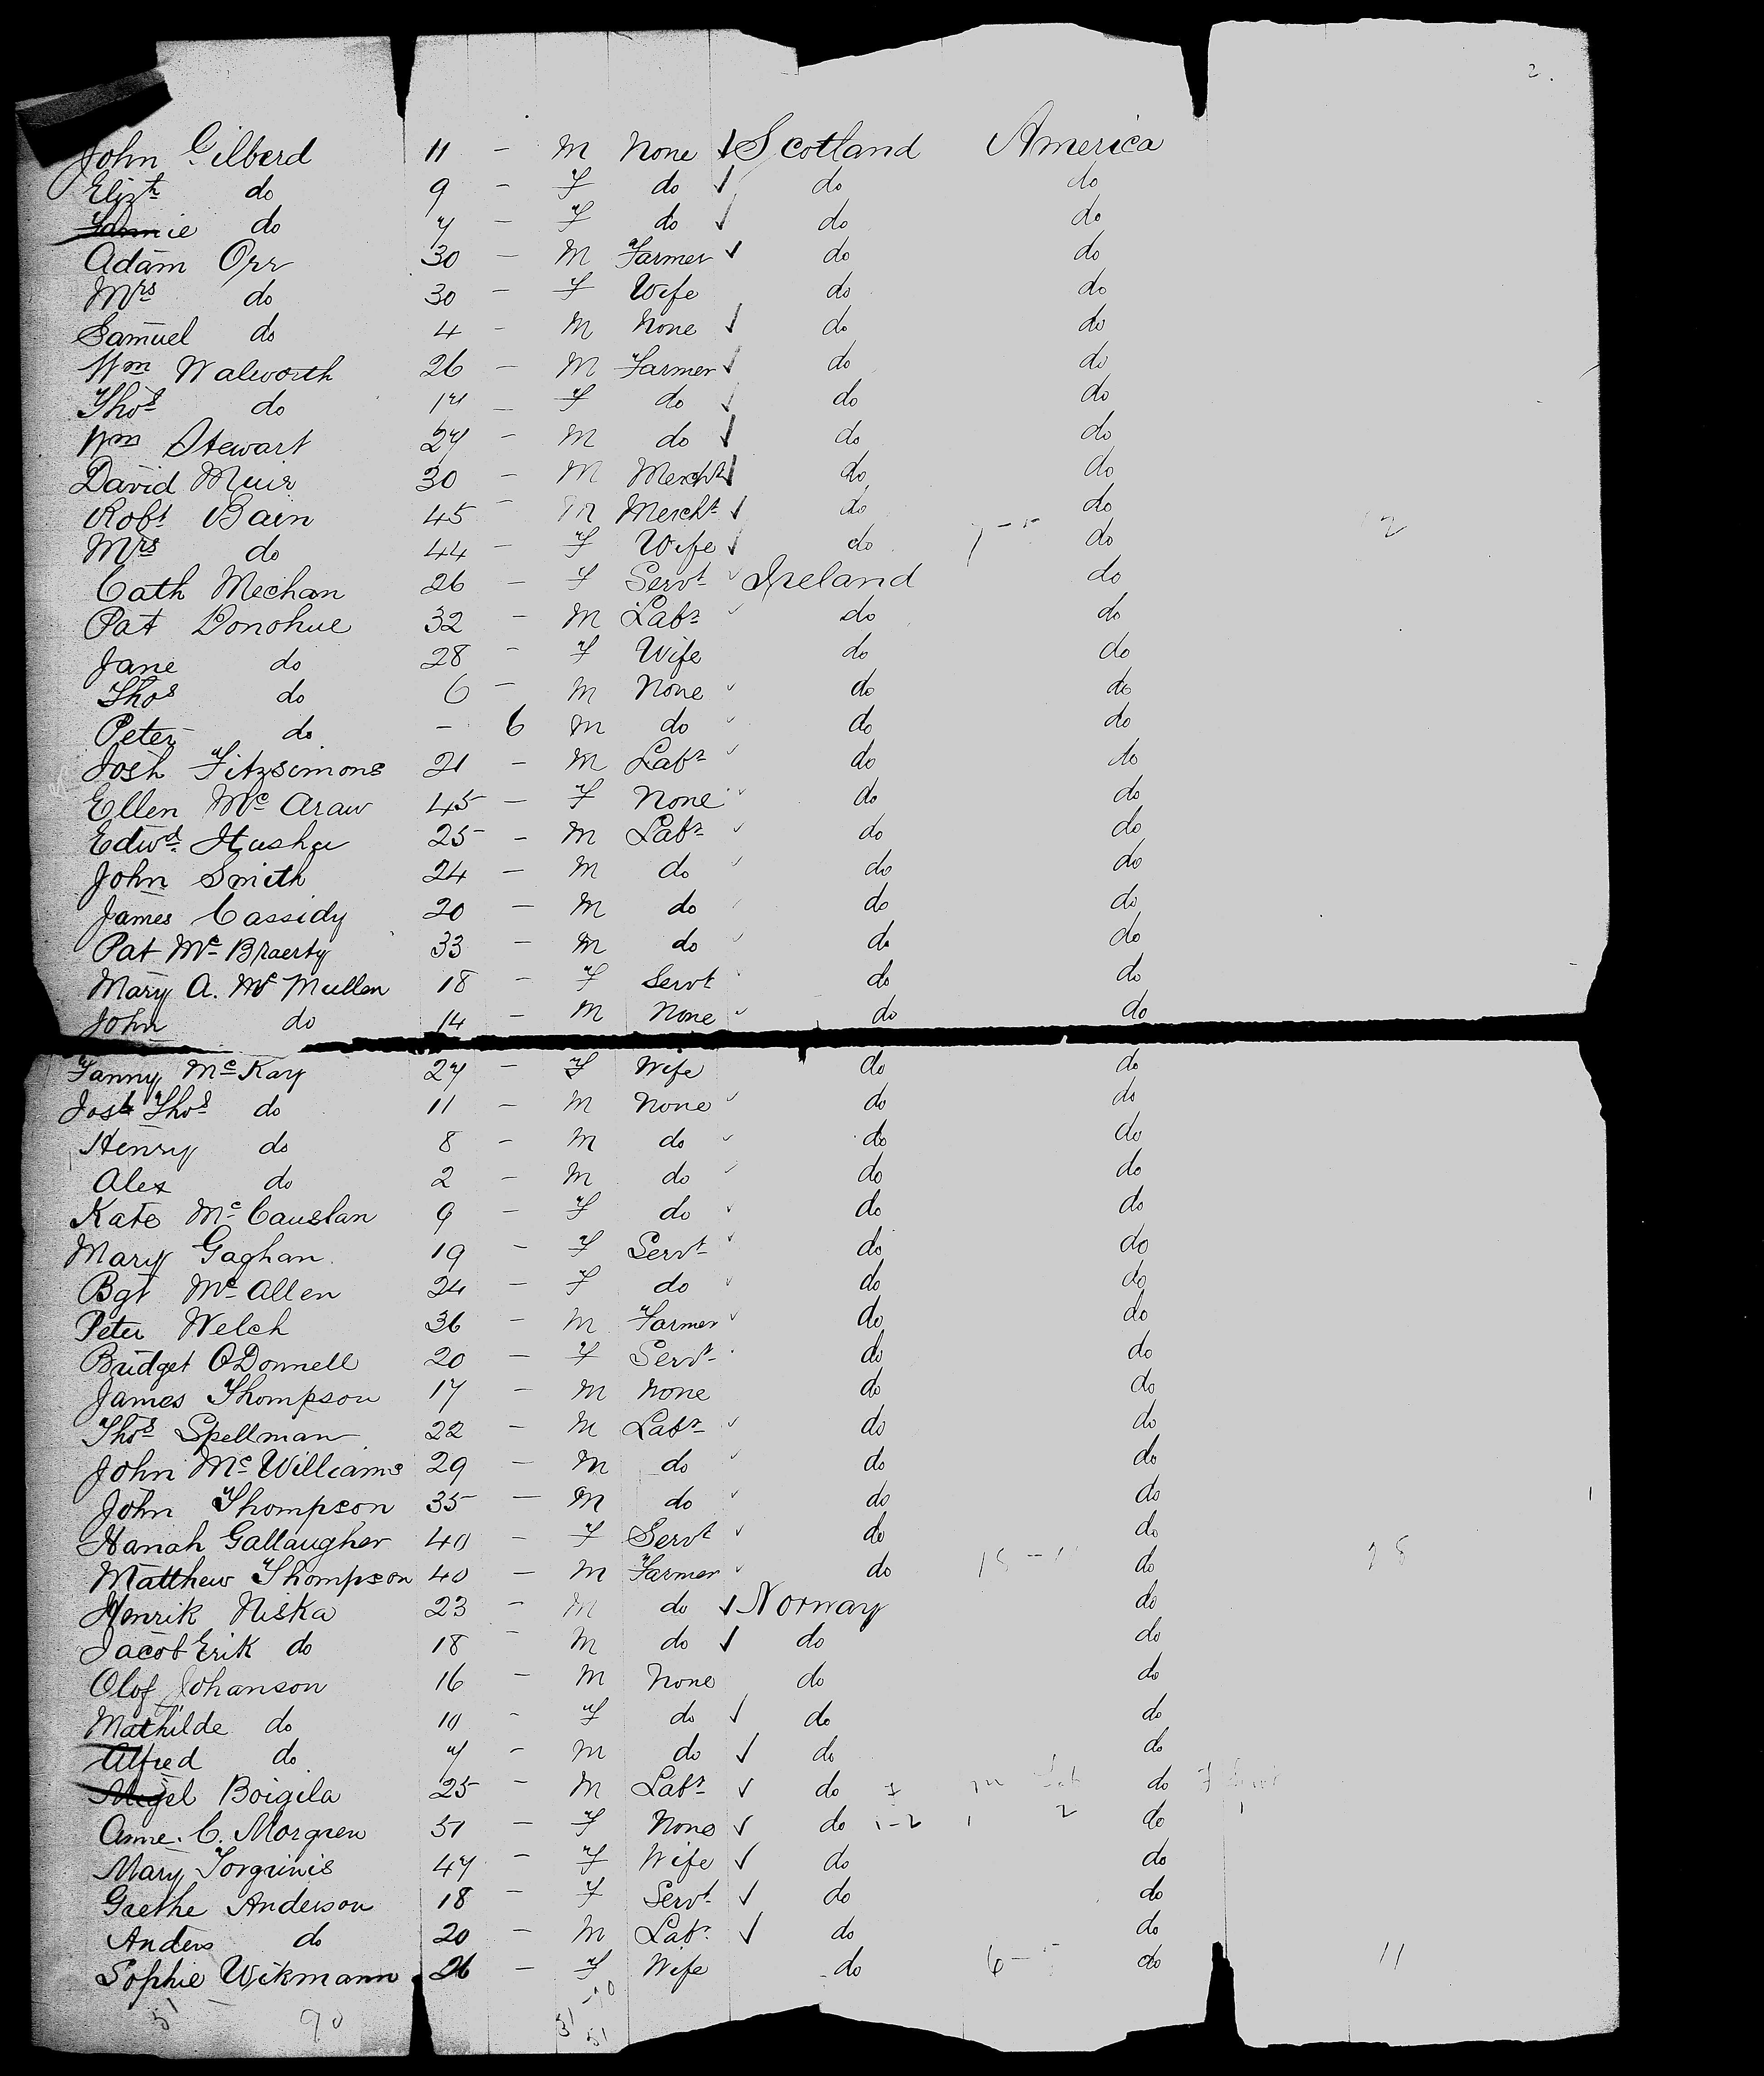 2.
John Gilberd 11 - M None ✓ Scotland America
Elizth do 9 - F do ✓ do do
do 7 - F do ✓ do do
Adam Orr 30 - M Farmer ✓ do do
Mrs do 30 - F Wife do do
Samuel do 4 - M None ✓ do do
Wm Walworth 26 - M Farmer ✓ do do
Thos do 17 - F do ✓ do do
Wm Stewart 27 - M do ✓ do do
David Muir 30 - M Mercht ✓ do do
Robt Bain 45 - M Mercht ✓ do do
Mrs do 44 - F Wife ✓ do do
Cath Mechan 26 - F Servt ✓ Ireland do
Pat Donohue 32 - M Labr ✓ do do
Jane do 28 - F Wife do do
Thos do 6 - M None ✓ do do
Peter do - 6 M do ✓ do do
Josh Fitzsimons 21 - M Labr ✓ do do
Ellen Mc Araw 45 - F None ✓ do do
Edwd 25 - M Labr ✓ do do
John Smith 24 - M do ✓ do do
James Cassidy 20 - M do ✓ do do
Pat Mc Braerty 33 - M do ✓ do do
Mary A. Mc Mullen 18 - F Servt ✓ do do
John do 14 - M None ✓ do do
Fanny Mc Kay 27 - F Wife do do
Josh Thos do 11 - M None ✓ do do
Henry do 8 - M do ✓ do do
Alex do 2 - M do ✓ do do
Kate Mc Causlan 9 - F do ✓ do do
Mary Gaghan 19 - F Servt ✓ do do
Bgt Mc Allen 24 - F do ✓ do do
Peter Welch 36 - M Farmer ✓ do do
Bridget ODonnell 20 - F Servt do do
James Thompson 17 - M None do do
Thos Spellman 22 - M Labr ✓ do do
John Mc Williams 29 - M do ✓ do do
John Thompson 35 - M do ✓ do do
Hanah Gallaugher 40 - F Servt ✓ do do
Matthew Thompson 40 - M Farmer ✓ do do
Henrik Niska 23 - M do ✓ Norway do
Jacob Erik do 18 - M do ✓ do do
Olof Johanson 16 - M None do do
Mathilde do 10 - F do ✓ do do
Alfred do 7 - M do ✓ do do
Migel Boigila 25 - M Labr ✓ do do
Anne. C. Morgren 51 - F None ✓ do do
Mary Torgrinis 47 - F Wife ✓ do do
Grethe Anderson 18 - F Servt ✓ do do
Anders do 20 - M Labr ✓ do do
Sophie Wikmann 26 - F Wife do do 11
51 90
51